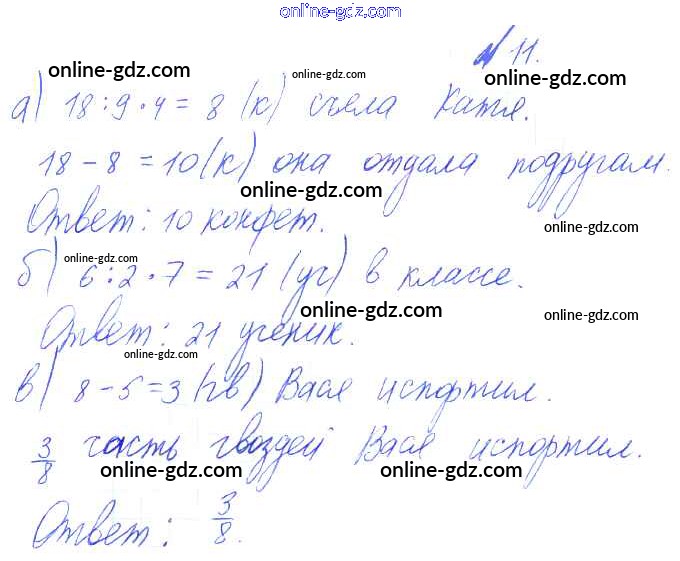 online-gdz.com
№ 11.
online-gdz.com
online-gdz.com
а) 18:9·4 = 8 (к) съела Катя.
18 - 8 = 10 (к) она отдала подругам.
online-gdz.com
Ответ: 10 конфет.
online-gdz.com
online-gdz.com
б) 6:2·7 = 21 (уч) в классе.
online-gdz.com
online-gdz.com
Ответ: 21 ученик.
online-gdz.com
в) 8 - 5 = 3 (гв) Вася испортил.
3/8 часть гвоздей Вася испортил.
online-gdz.com
online-gdz.com
Ответ: 3/8.